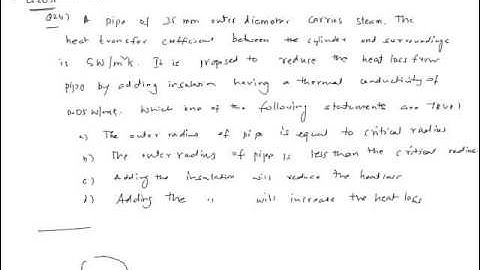 Q24) A pipe of 25 mm outer diameter carries steam. The
heat transfer cufficient between the cylinder and surroundings
is 5W/m²k. It is proposed to reduce the heat loss from
pipe by adding insulation having a thermal conductivity of
0.05 W/mk. Which one of the following statements are TRUE?
a) The outer radius of pipe is equal to critical radius
b) The outer radius of pipe is less than the critical radius
c) Adding the insulation will reduce the heat loss
d) Adding the " will increase the heat loss